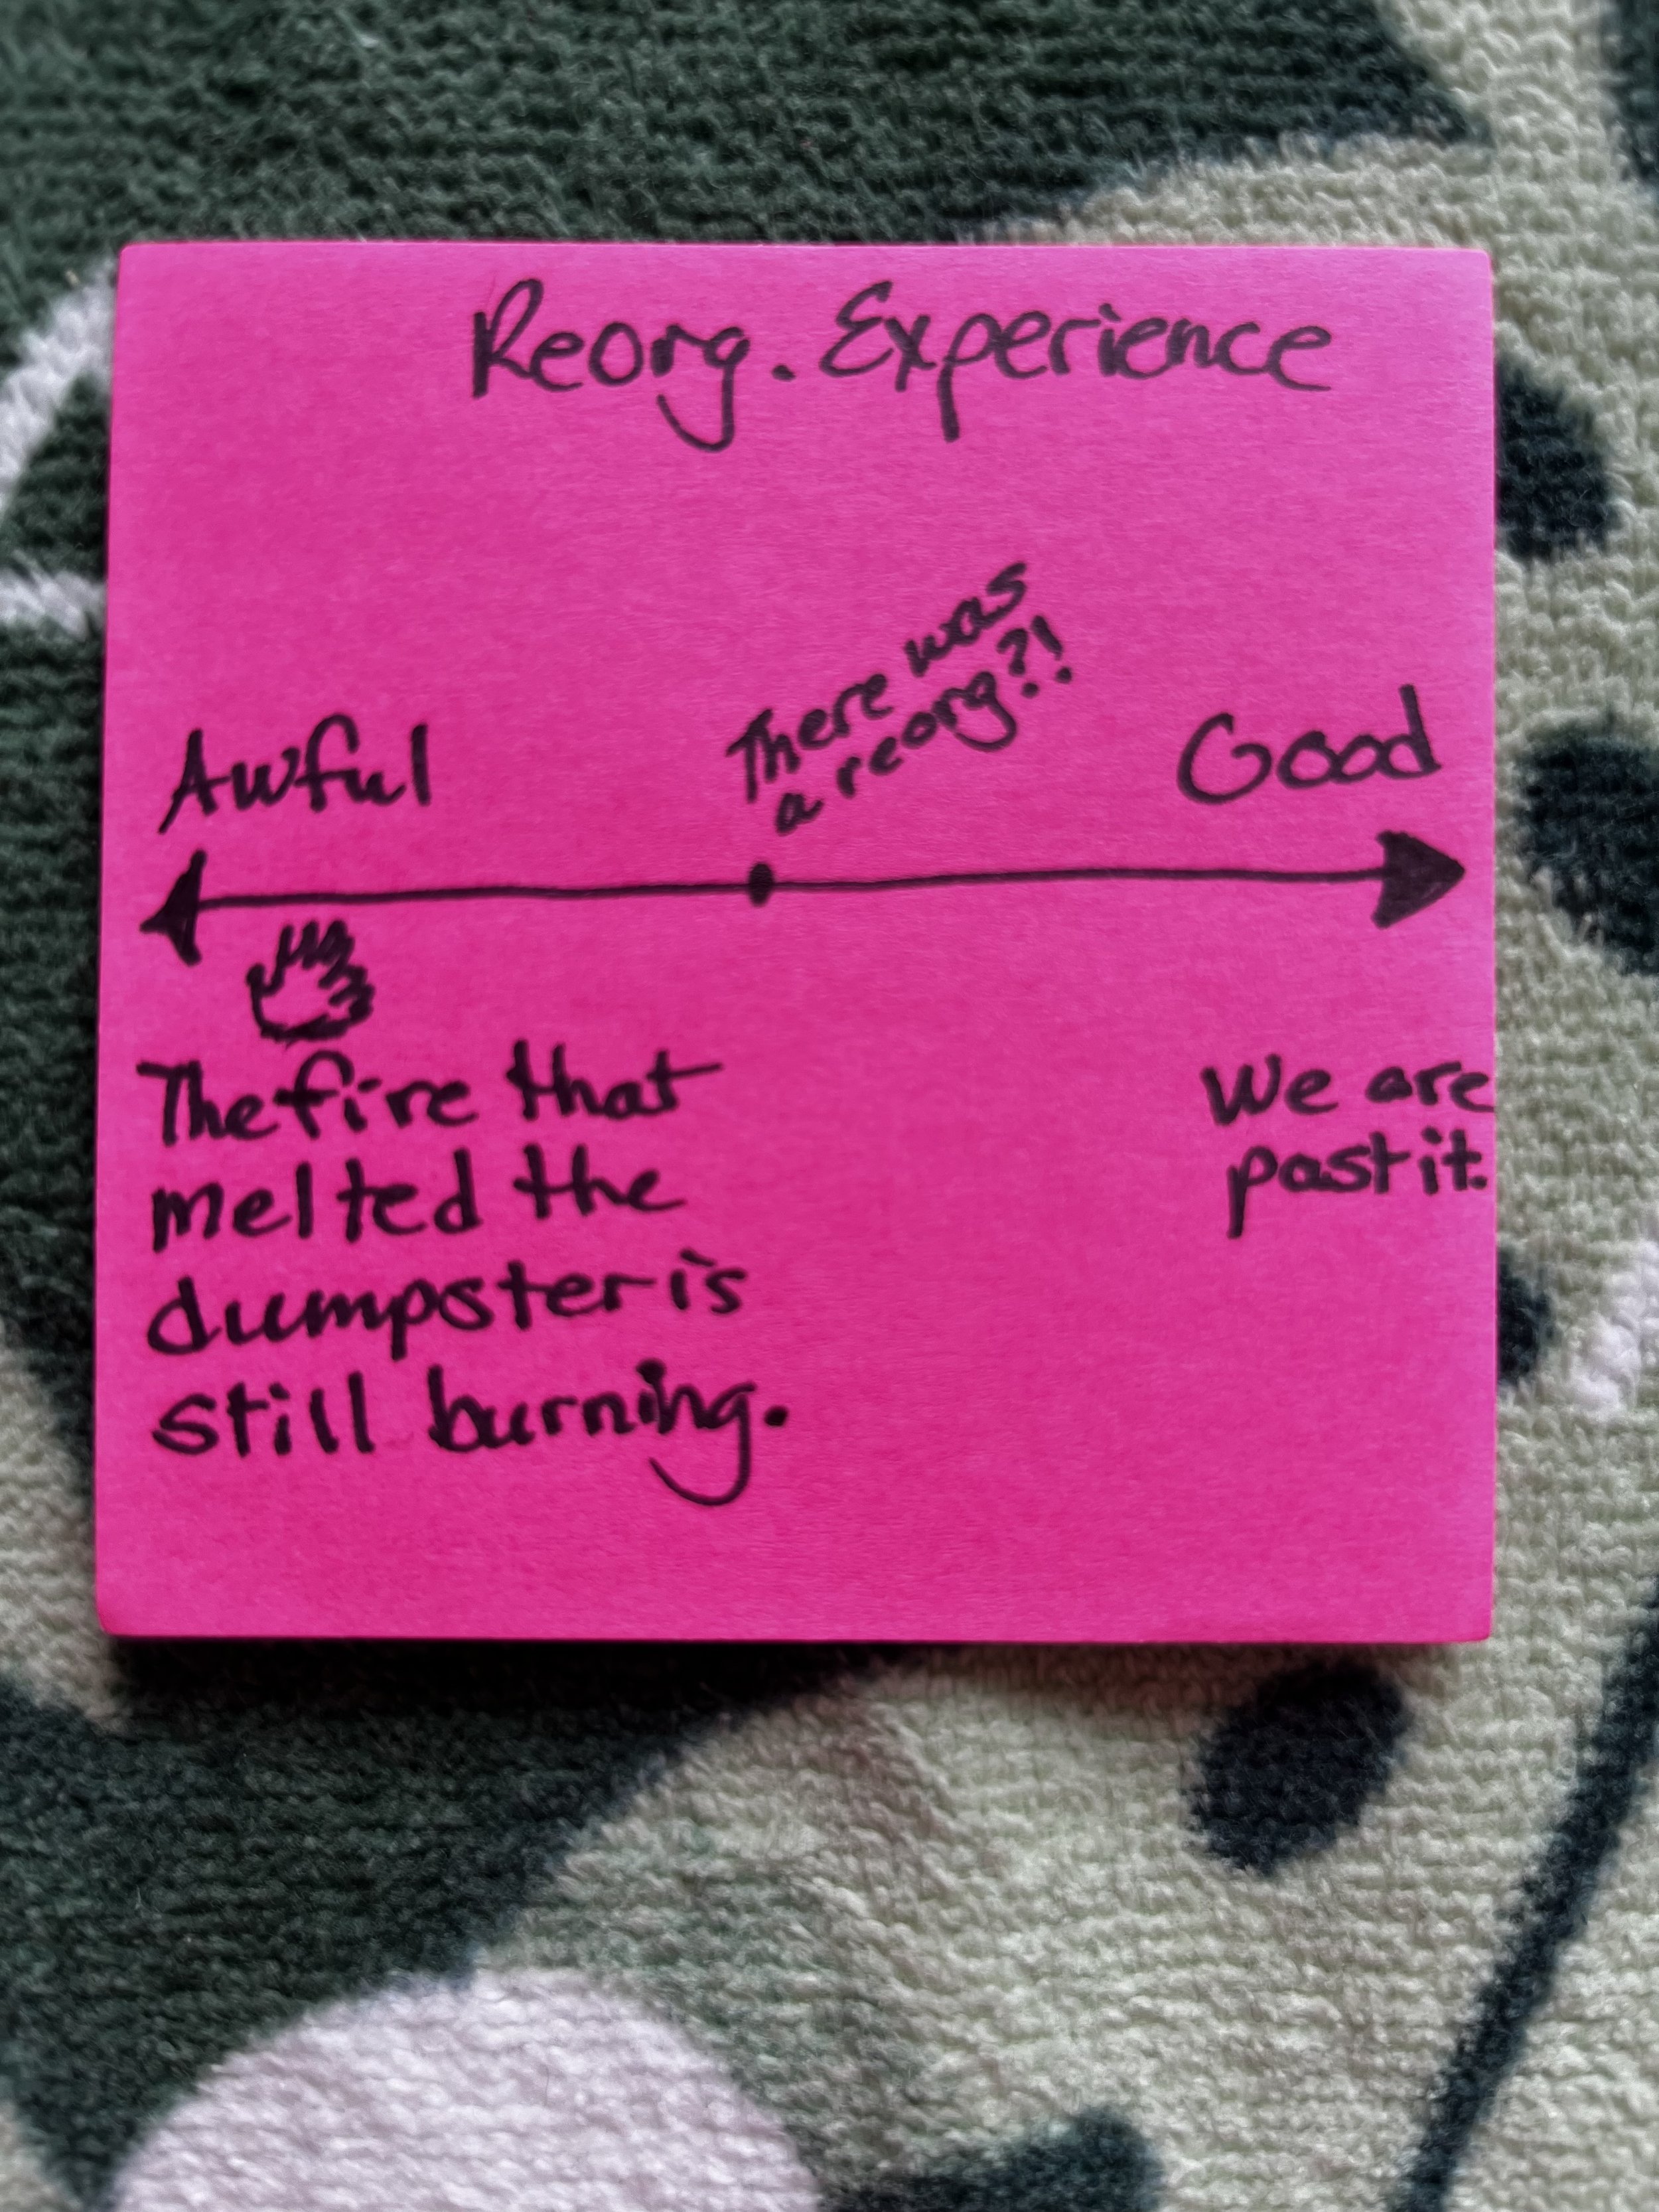 Reorg. Experience
There was
a reorg?!
Awful
Good
The fire that
melted the
dumpster is
still burning.
We are
past it.